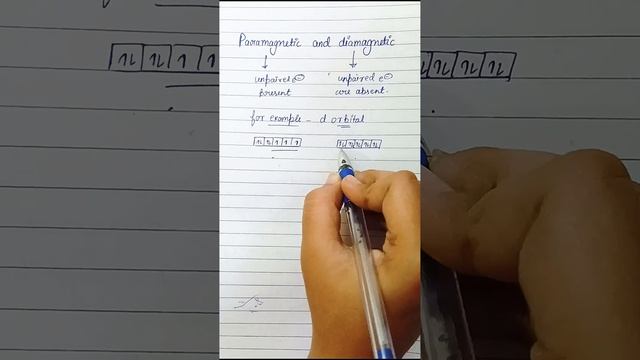 Paramagnetic and diamagnetic
↓ ↓
unpaired e⊖ unpaired e⊖
present are absent.
for example - d orbital
↿⇂ ↿⇂ ↿ ↿ ↿ ↿⇂ ↿⇂ ↿⇂ ↿⇂ ↿⇂